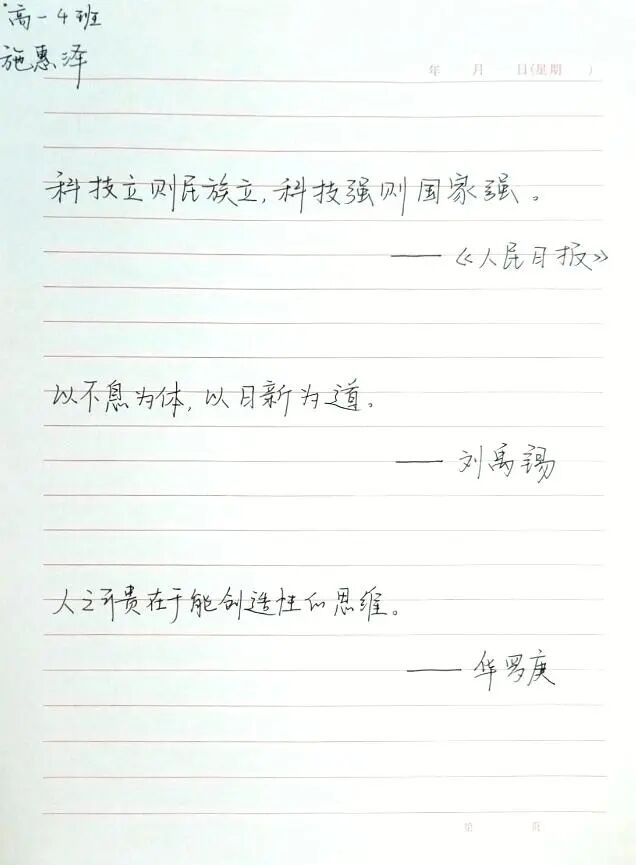 高一4班
施惠泽
年 月 日(星期 )
科技立则民族立,科技强则国家强。
——《人民日报》
以不息为体,以日新为道。
——刘禹锡
人之可贵在于能创造性的思维。
——华罗庚
第 页